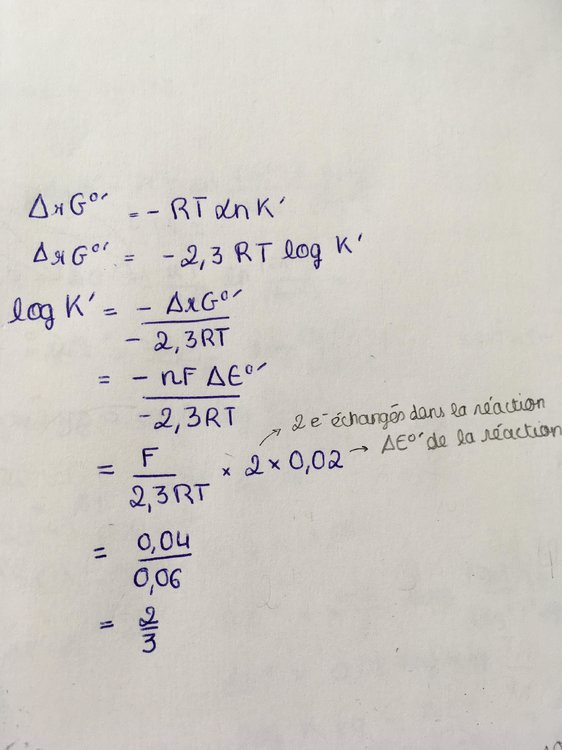 ΔrG°' = - RT ln K'
ΔrG°' = - 2,3 RT log K'
log K' = - ΔrG°' / - 2,3RT
= - nF ΔE°' / - 2,3RT
= F / 2,3RT × 2 × 0,02
→ 2 e⁻ échangés dans la réaction
→ ΔE°' de la réaction
= 0,04 / 0,06
= 2 / 3